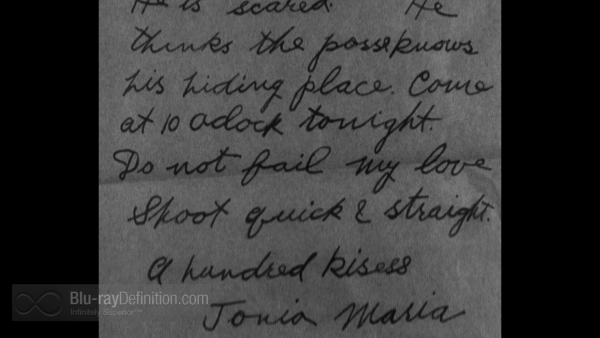 He is scared. He
thinks the posse knows
his hiding place. Come
at 10 oclock tonight.
Do not fail my love
Shoot quick & straight.
A hundred kisess
Tonia Maria
Blu-rayDefinition.com
Infinitely Superior™